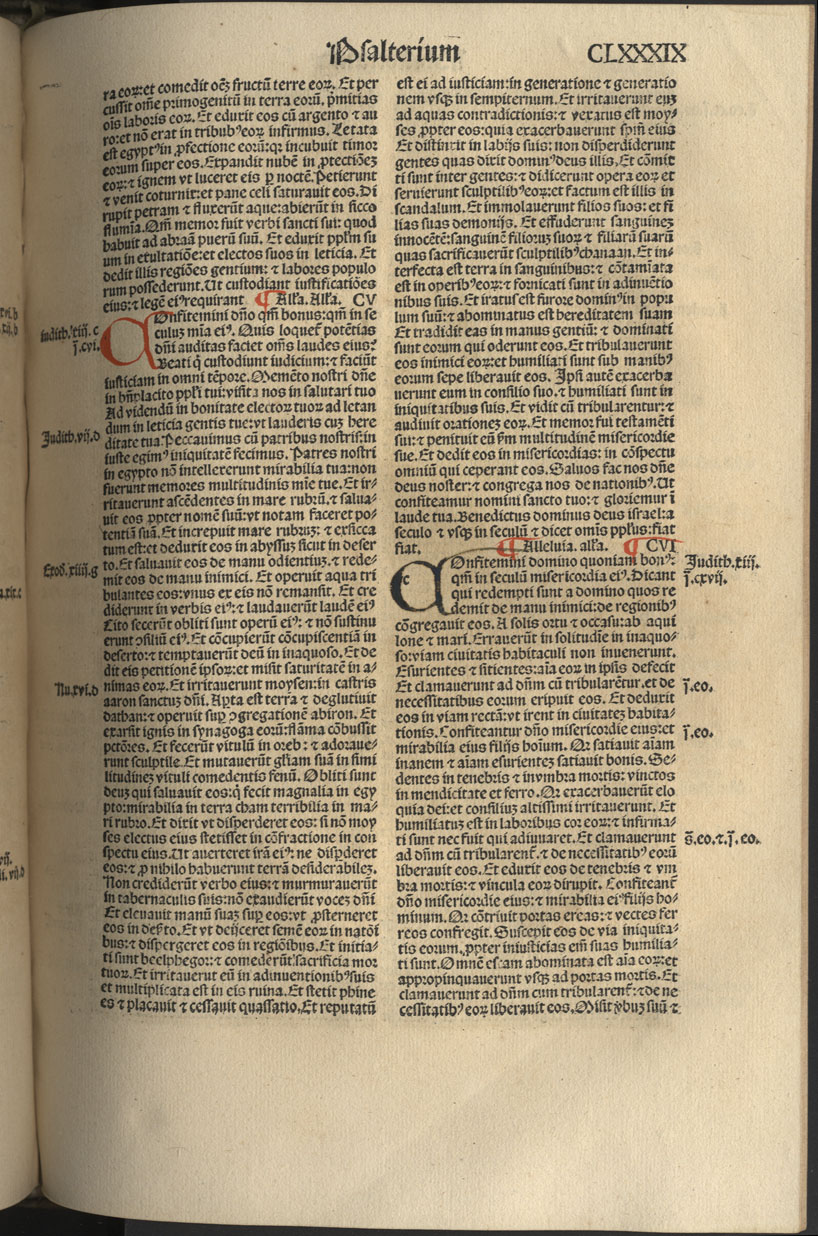 Psalterium CLXXXIX
ra eoꝝ:et comedit oēʒ fructū terre eoꝝ. Et per
cussit oīne primogenitū in terra eorū. p̄mitias
oīs laboris eoꝝ. Et eduxit eos cū argento ⁊ au
ro:et nō erat in tribubꝰ eoꝝ infirmus. Letata
est egyptꝰ in ꝓfectione eorū:qꝛ incubuit timor
eorum super eos. Expandit nubē in ꝓtectiōeʒ
eoꝝ:⁊ ignem vt luceret eis ꝑ noctē. Petierunt
⁊ venit coturnix:et pane celi saturauit eos. Di
rupit petram ⁊ fluxerūt aque:abierūt in sicco
flumīa. Qm̄ memor fuit verbi sancti sui: quod
habuit ad abraā puerū suū. Et eduxit ppl̄m su
um in exultatiōe:et electos suos in leticia. Et
dedit illis regiōes gentium: ⁊ labores populo
rum possederunt. Ut custodiant iustificatiōes
eius:⁊ legē eiꝰ requirant ¶ All'a. All'a. CV
COnfitemini dn̄o qm̄ bonus:qm̄ in se
culuʒ mīa eiꝰ. Quis loquet̄ potētias
dn̄i auditas faciet om̄s laudes eius?
Beati q̄ custodiunt iudicium:⁊ faciūt
iusticiam in omni tēpore. Memēto nostri dn̄e
in bn̄placito ppl̄i tui:visita nos in salutari tuo
Ad videndū in bonitate electoꝝ tuoꝝ ad letan
dum in leticia gentis tue:vt lauderis cuʒ here
ditate tua. Peccauimus cū patribus nostris:in
iuste egimꝰ iniquitatē fecimus. Patres nostri
in egypto nō intellexerunt mirabilia tua:non
fuerunt memores multitudinis mīe tue. Et ir⸗
ritauerunt ascēdentes in mare rubrū.⁊ salua⸗
uit eos ꝓpter nomē suū:vt notam faceret po⸗
tentiā suā. Et increpuit mare rubruʒ: ⁊ exsicca
tum est:et deduxit eos in abyssuʒ sicut in deser
to. Et saluauit eos de manu odientiuʒ.⁊ rede⸗
mit eos de manu inimici. Et operuit aqua tri
bulantes eos:vnus ex eis nō remansit. Et cre
diderunt in verbis eiꝰ:⁊ laudauerūt laudē eiꝰ
Cito fecerūt obliti sunt operū eiꝰ: ⁊ nō sustinu
erunt ↄsiliū eiꝰ. Et cōcupierūt cōcupiscentiā in
deserto:⁊ temptauerūt deū in inaquoso. Et de
dit eis petitionē ipsoꝝ:et misit saturitatē in a⸗
nimas eoꝝ. Et irritauerunt moysen:in castris
aaron sanctuʒ dn̄i. Aꝑta est terra ⁊ deglutiuit
dathan:⁊ operuit suꝑ ↄgregationē abiron. Et
exarsit ignis in synagoga eorū:flāma cōbussit
pctōres. Et fecerūt vitulū in oreb: ⁊ adoraue⸗
runt sculptile. Et mutauerūt gl̄iam suā in simi
litudineʒ vituli comedentis fenū. Obliti sunt
deuʒ qui saluauit eos:q̄ fecit magnalia in egy
pto:mirabilia in terra cham terribilia in ma⸗
ri rubro. Et dixit vt disperderet eos: si nō moy
ses electus eius stetisset in cōfractione in con
spectu eius. Ut auerteret irā eiꝰ: ne disꝑderet
eos:⁊ ꝓ nihilo habuerunt terrā desiderabileʒ.
Non crediderūt verbo eius:⁊ murmurauerūt
in tabernaculis suis:nō exaudierūt voceʒ dn̄i
Et eleuauit manū suaʒ suꝑ eos:vt ꝓsterneret
eos in des̄to. Et vt deijceret semē eoꝝ in natōi
bus:⁊ dispergeret eos in regiōibus. Et initia⸗
ti sunt beelphegor:⁊ comederūt sacrificia mor
tuoꝝ. Et irritauerut eū in adinuentionibꝰ suis
et multiplicata est in eis ruina. Et stetit phine
es ⁊ placauit ⁊ cessauit quassatio. Et reputatū
est ei ad iusticiam:in generatione ⁊ generatio
nem vsqʒ in sempiternum. Et irritauerunt euʒ
ad aquas contradictionis:⁊ vexatus est moy⸗
ses ꝓpter eos:quia exacerbauerunt spm̄ eius
Et distinxit in labijs suis: non disperdiderunt
gentes quas dixit dominꝰ deus illis. Et cōmix
ti sunt inter gentes:⁊ didicerunt opera eoꝝ et
seruierunt sculptilibꝰ eoꝝ:et factum est illis in
scandalum. Et immolauerunt filios suos: et fi
lias suas demonijs. Et effuderunt sanguineʒ
innocētē:sanguinē filioruʒ suoꝝ ⁊ filiarū suarū
quas sacrificauerūt sculptilibꝰ chanaan. Et in⸗
terfecta est terra in sanguinibus:⁊ cōtamiata
est in operibꝰ eoꝝ:⁊ fornicati sunt in adinuētio
nibus suis. Et iratus est furore dominꝰ in popu
lum suū:⁊ abominatus est hereditatem suam
Et tradidit eas in manus gentiū:⁊ dominati
sunt eorum qui oderunt eos. Et tribulauerunt
eos inimici eoꝝ:et humiliati sunt sub manibꝰ
eorum sepe liberauit eos. Ipsi autē exacerba
uerunt eum in consilio suo.⁊ humiliati sunt in
iniquitatibus suis. Et vidit cū tribularentur:⁊
audiuit orationeʒ eoꝝ. Et memor fuit testamēti
sui:⁊ penituit eū s̄m multitudinē misericordie
sue. Et dedit eos in misericordias: in cōspectu
omniū qui ceperant eos. Saluos fac nos dn̄e
deus noster:⁊ congrega nos de nationibꝰ. Ut
confiteamur nomini sancto tuo:⁊ gloriemur ī
laude tua. Benedictus dominus deus israel:a
seculo ⁊ vsqʒ in seculū ⁊ dicet om̄is ppl̄us:fiat
fiat. ¶ Alleluia. all'a. ¶ CVI
COnfitemini domino quoniam bonꝰ:
qm̄ in seculū misericordia eiꝰ. Dicant
qui redempti sunt a domino quos re
demit de manu inimici:de regionibꝰ
cōgregauit eos. A solis ortu ⁊ occasu:ab aqui
lone ⁊ mari. Errauerūt in solitudīe in inaquo⸗
so:viam ciuitatis habitaculi non inuenerunt.
Esurientes ⁊ sitientes:aīa eoꝝ in ipsis defecit
Et clamauerunt ad dn̄m cū tribularētur.et de
necessitatibus eorum eripuit eos. Et deduxit
eos in viam rectā:vt irent in ciuitateʒ habita⸗
tionis. Confiteantur dn̄o misericordie eius:et
mirabilia eius filijs hoīum. Qr satiauit aīam
inanem ⁊ aīam esurienteʒ satiauit bonis. Se⸗
dentes in tenebris ⁊ invmbra mortis: vinctos
in mendicitate et ferro. Qr exacerbauerūt elo
quia dei:et consiliuʒ altissimi irritauerunt. Et
humiliatuʒ est in laboribus cor eoꝝ:⁊ infirma⸗
ti sunt nec fuit qui adiuuaret. Et clamauerunt
ad dn̄m cū tribularent̄.⁊ de necessitatibꝰ eorū
liberauit eos. Et eduxit eos de tenebris ⁊ vm
bra mortis:⁊ vincula eoꝝ dirupit. Confiteant̄
dn̄o misericordie eius:⁊ mirabilia eiꝰ filijs ho⸗
minum. Qr cōtriuit portas ereas:⁊ vectes fer
reos confregit. Suscepit eos de via iniquita⸗
tis eorum.ꝓpter iniusticias em̄ suas humilia⸗
ti sunt. Omnē escam abominata est aīa eoꝝ:et
appropinquauerunt vsqʒ ad portas mortis. Et
clamauerunt ad dn̄m cum tribularent̄:⁊ de ne
cessitatibꝰ eoꝝ liberauit eos. Misit v̄buʒ suū ⁊
iudith.xiij.c
j̄.cvi.
Judith.vij.d
Exod.xiiij.g
Nu.xvi.d
Judith.xiij.
j̄.cxvij.
j̄.eo.
j̄.eo.
s̄.eo.⁊.j̄.eo.